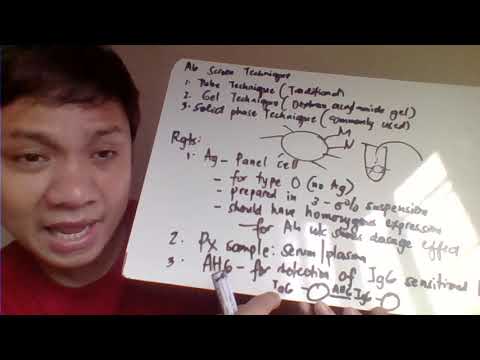 Ab Screen Technique
1. Tube Technique (Traditional)
2. Gel Technique (Dextran acrylamide gel)
3. Solid phase Technique (commonly used)
M
N
Rgts:
1. Ag - Panel Cell
- for type O (no Ag)
- prepared in 3-5% suspension
- should have homozygous expression
- for Ab w/c shows dosage effect
2. Px sample: serum/plasma
3. AHG - for detection of IgG sensitized
IgG AHG IgG